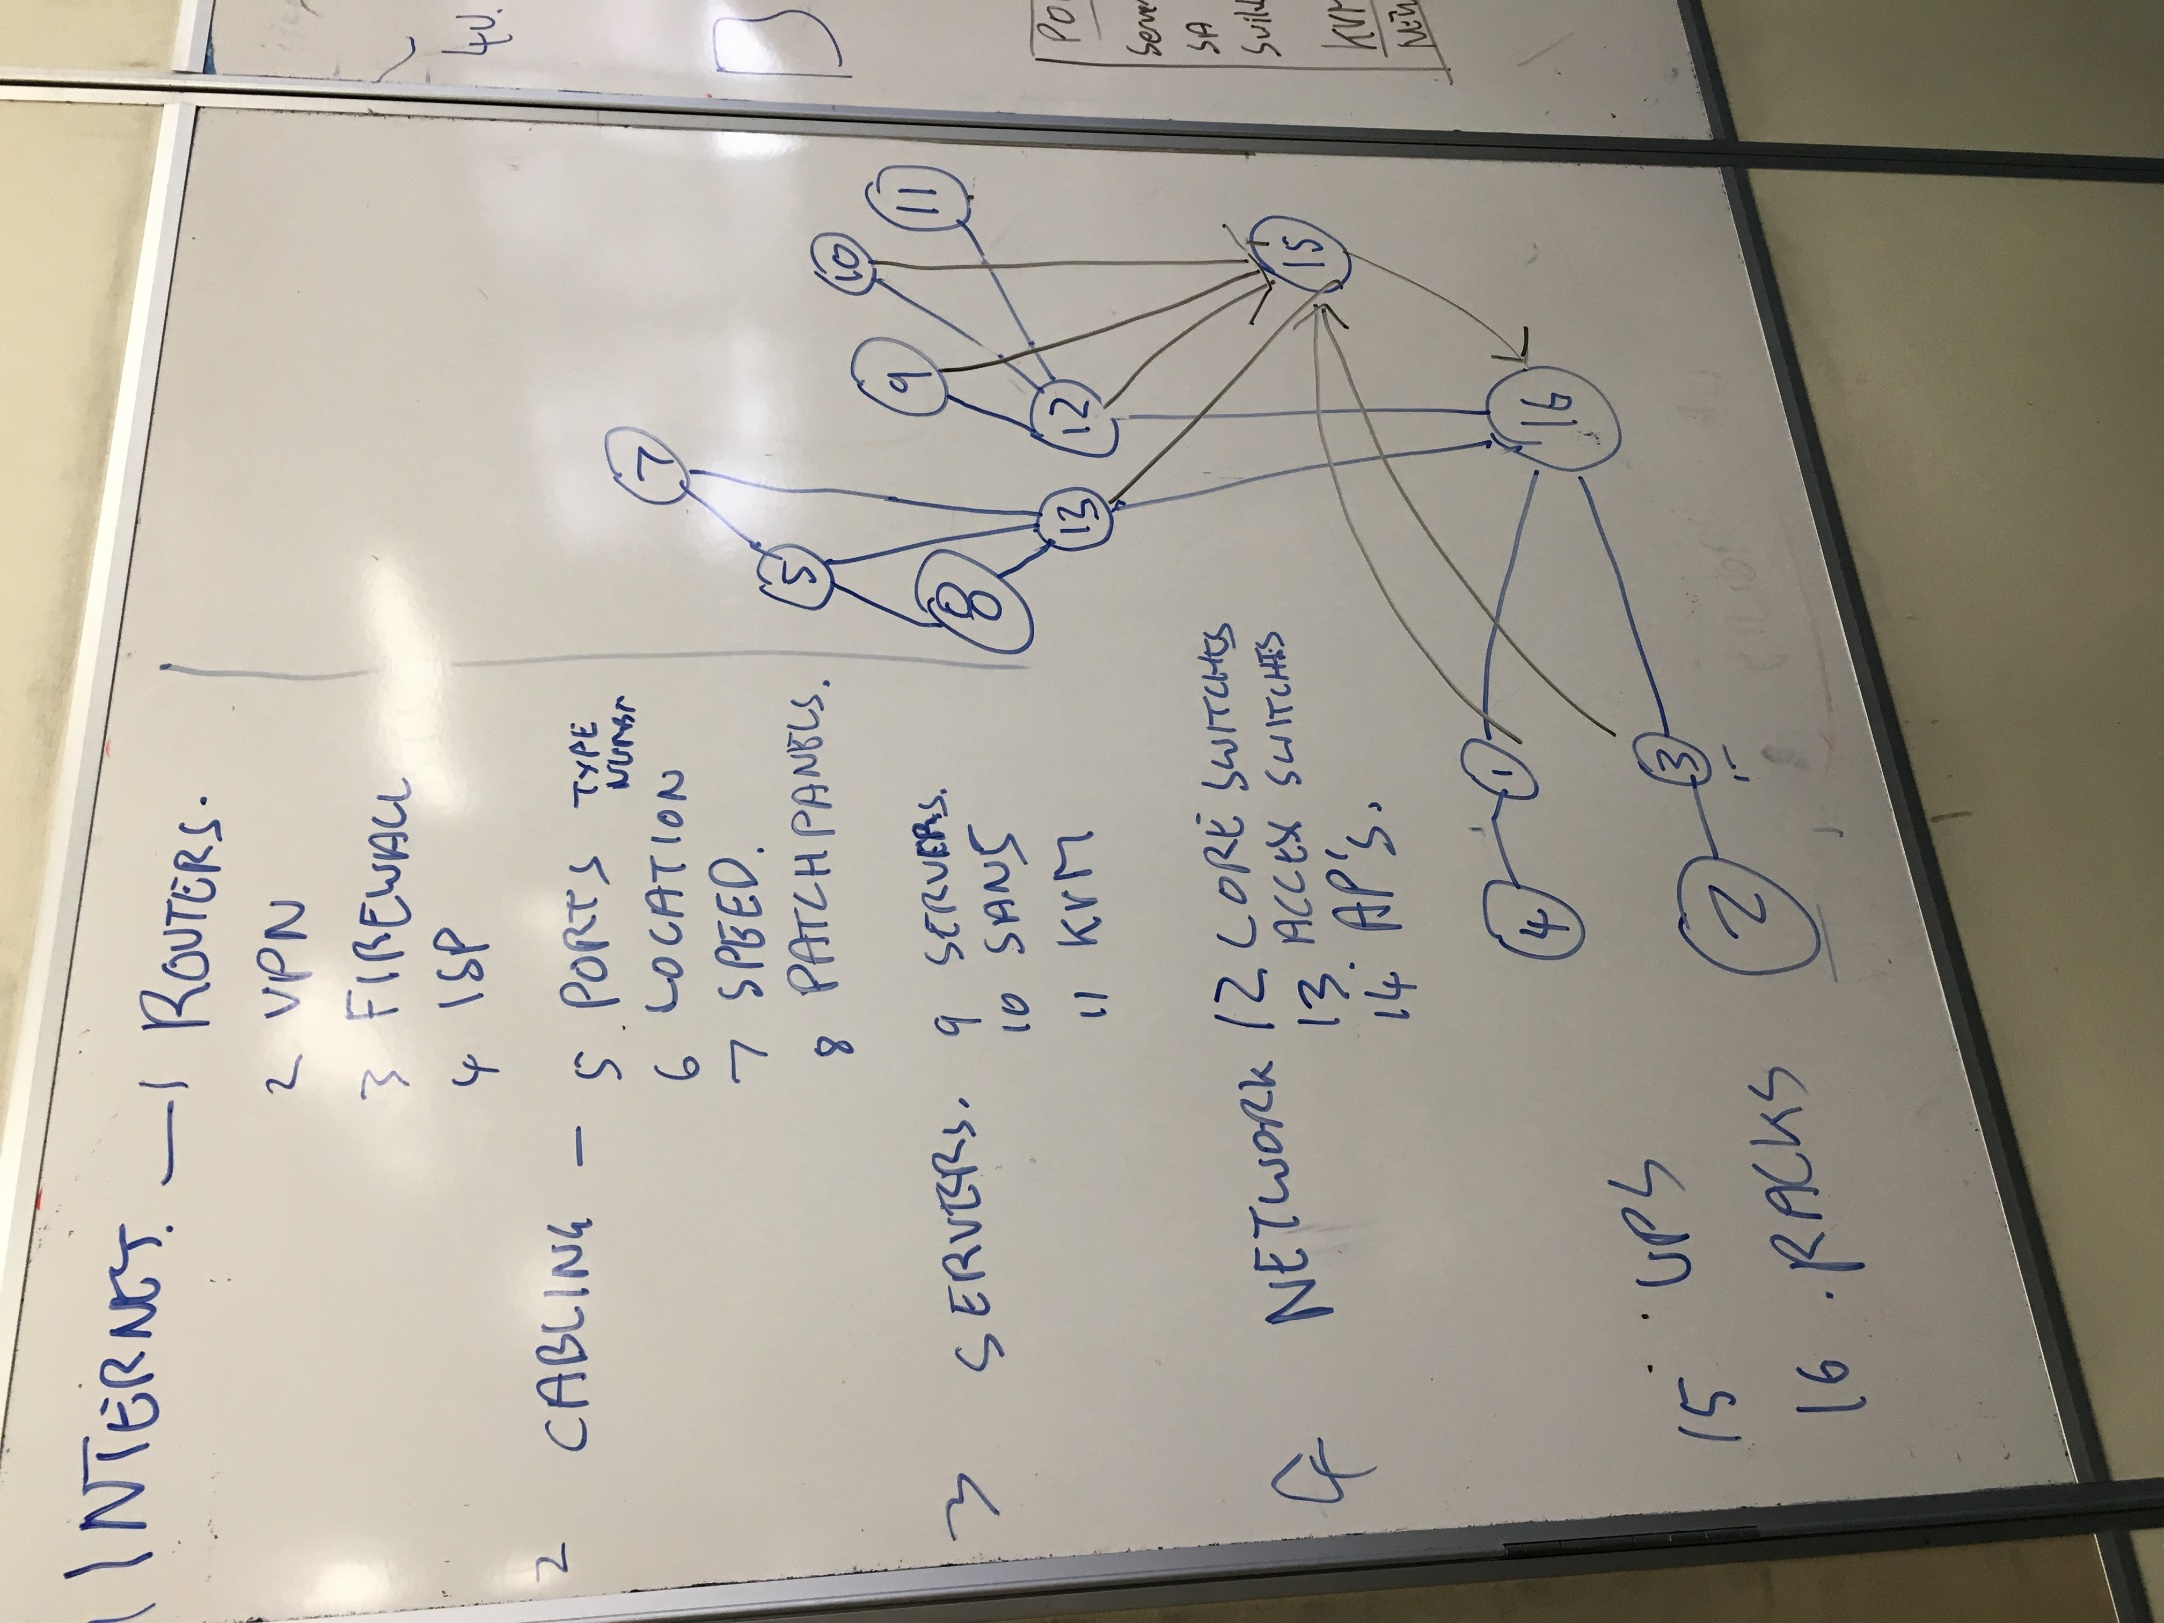 1 INTERNET. — 1 ROUTERS.
2 VPN
3 FIREWALL
4 ISP
2 CABLING – 5. PORTS TYPE
NUMBR
6 LOCATION
7 SPEED.
8 PATCH PANELS.
3 SERVERS. 9 SERVERS.
10 SANS
11 KVM
4 NETWORK 12 CORE SWITCHES
13. ACCESS SWITCHES
14. AP'S.
15. UPS
16. RACKS
7
5
8
13
10
11
9
12
15
16
4
1
2
3
4U.
KVM